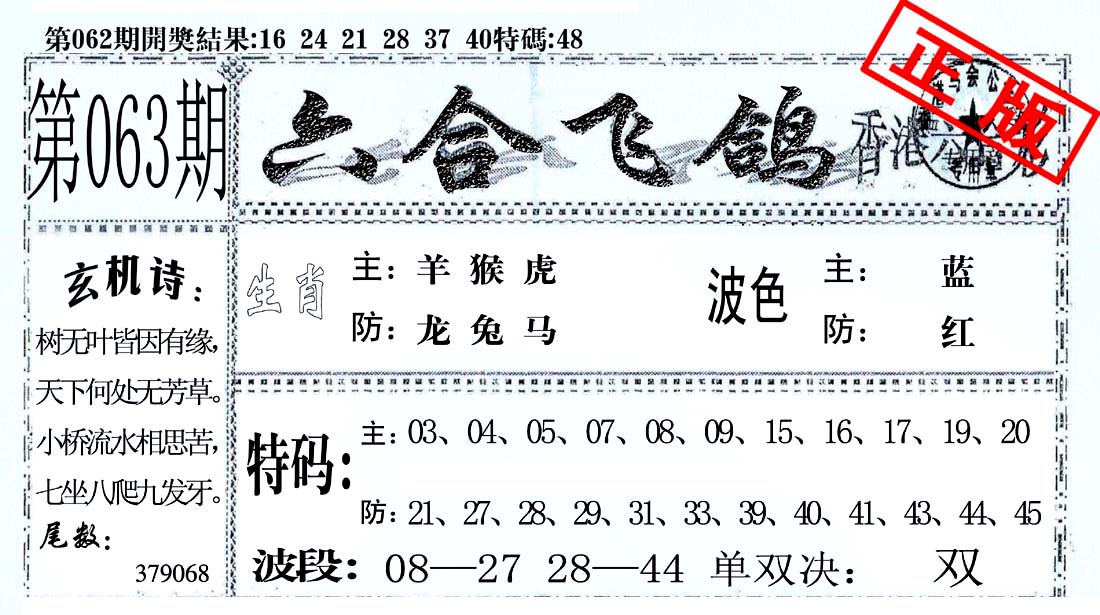 第062期開獎結果:16 24 21 28 37 40特碼:48
第063期
六合飞鸽
香港六
正版
玄机诗：
树无叶皆因有缘，
天下何处无芳草。
小桥流水相思苦，
七坐八爬九发牙。
尾数：
379068
生肖
主：羊 猴 虎
防：龙 兔 马
波色
主： 蓝
防： 红
特码：
主：03、04、05、07、08、09、15、16、17、19、20
防：21、27、28、29、31、33、39、40、41、43、44、45
波段：08—27 28—44 单双决： 双